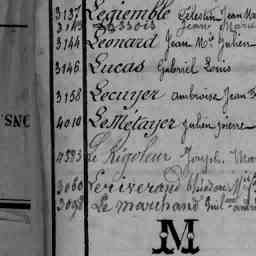 3137 Legiemble Célestin Jean Ma
3143 Jean Marie
3144 Léonard Jean M.ie Julien
3146 Lucas Gabriel Louis
3158 Lecuyer ambroise Jean
4010 LeMétayer julien pierre
4533 Le Rigoleur Joseph Mar
3060 Leriverand théodore
3098 Le marchand Guil.me andré
M
SNO